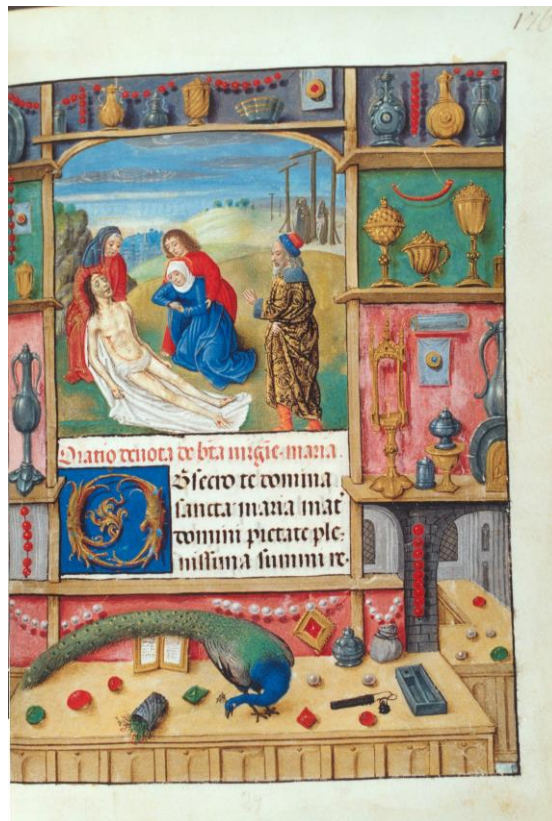 176
Oratio deuota de bta uirgie maria.
Obsecro te domina
sancta maria mat
domini pietate ple-
nissima summi re-